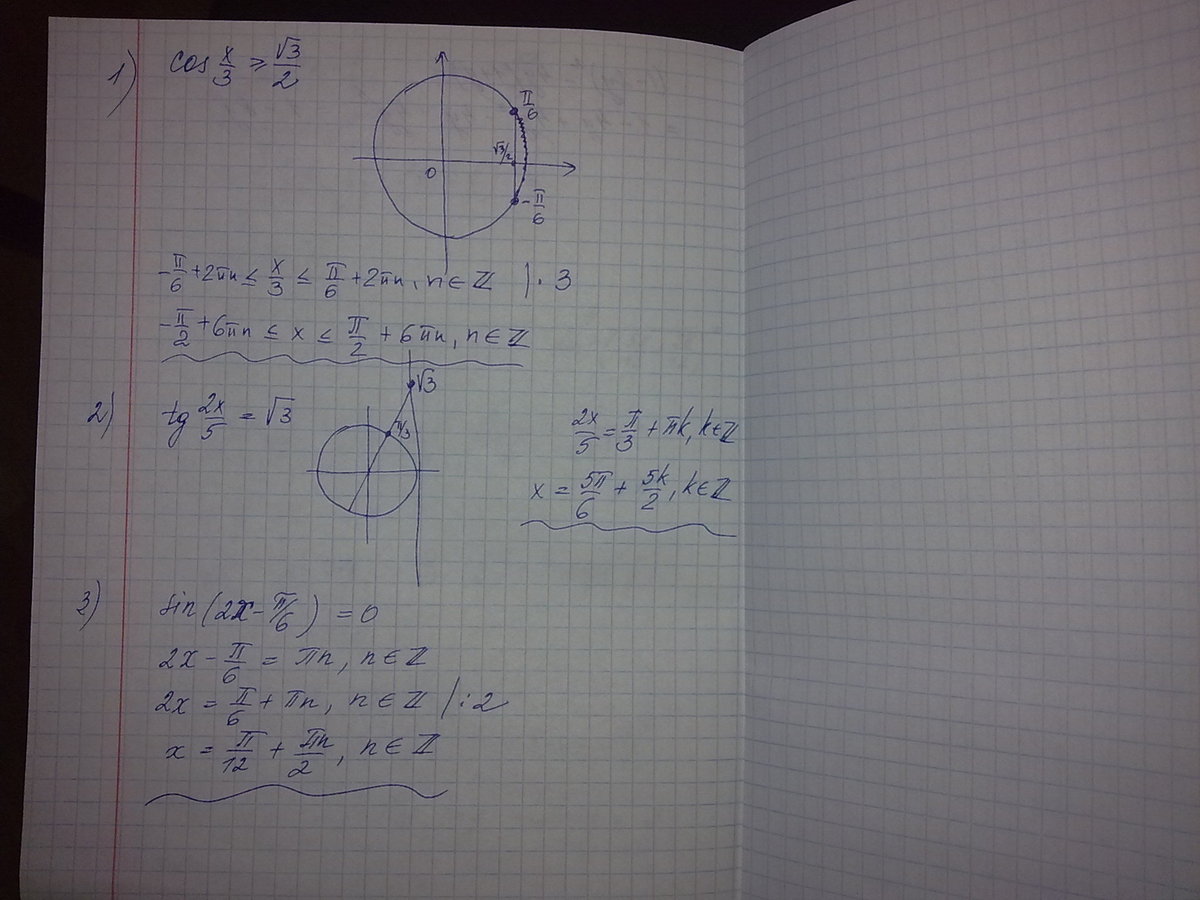 1) cos x/3 ≥ √3/2
π/6
√3/2
0
-π/6
-π/6 + 2πn ≤ x/3 ≤ π/6 + 2πn, n ∈ ℤ | · 3
-π/2 + 6πn ≤ x ≤ π/2 + 6πn, n ∈ ℤ
2) tg 2x/5 = √3
√3
π/3
2x/5 = π/3 + πk, k ∈ ℤ
x = 5π/6 + 5k/2, k ∈ ℤ
3) sin(2x - π/6) = 0
2x - π/6 = πn, n ∈ ℤ
2x = π/6 + πn, n ∈ ℤ | : 2
x = π/12 + πn/2, n ∈ ℤ